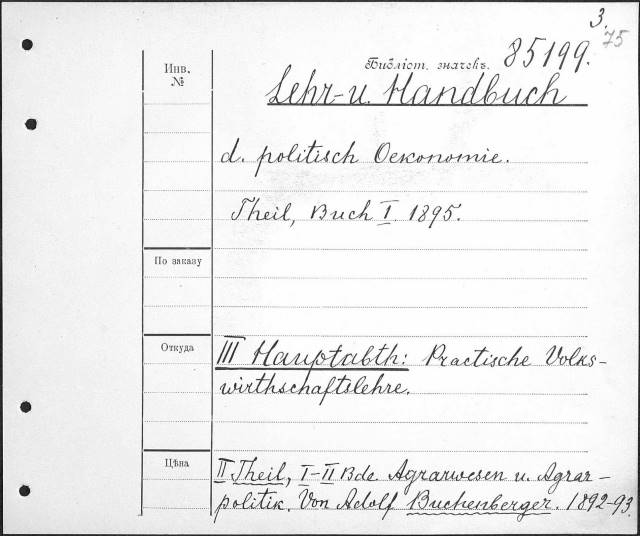 3.
75
Инв.
№
Библіот. значекъ. 85199.
Lehr- u. Handbuch
d. politisch Oekonomie.
Theil, Buch I. 1895.
По заказу
Откуда
III Hauptabth: Practische Volks-
wirthschaftslehre.
Цѣна
II Theil, I-II Bde Agrarwesen u. Agrar-
politik. Von Adolf Buchenberger. 1892-93.